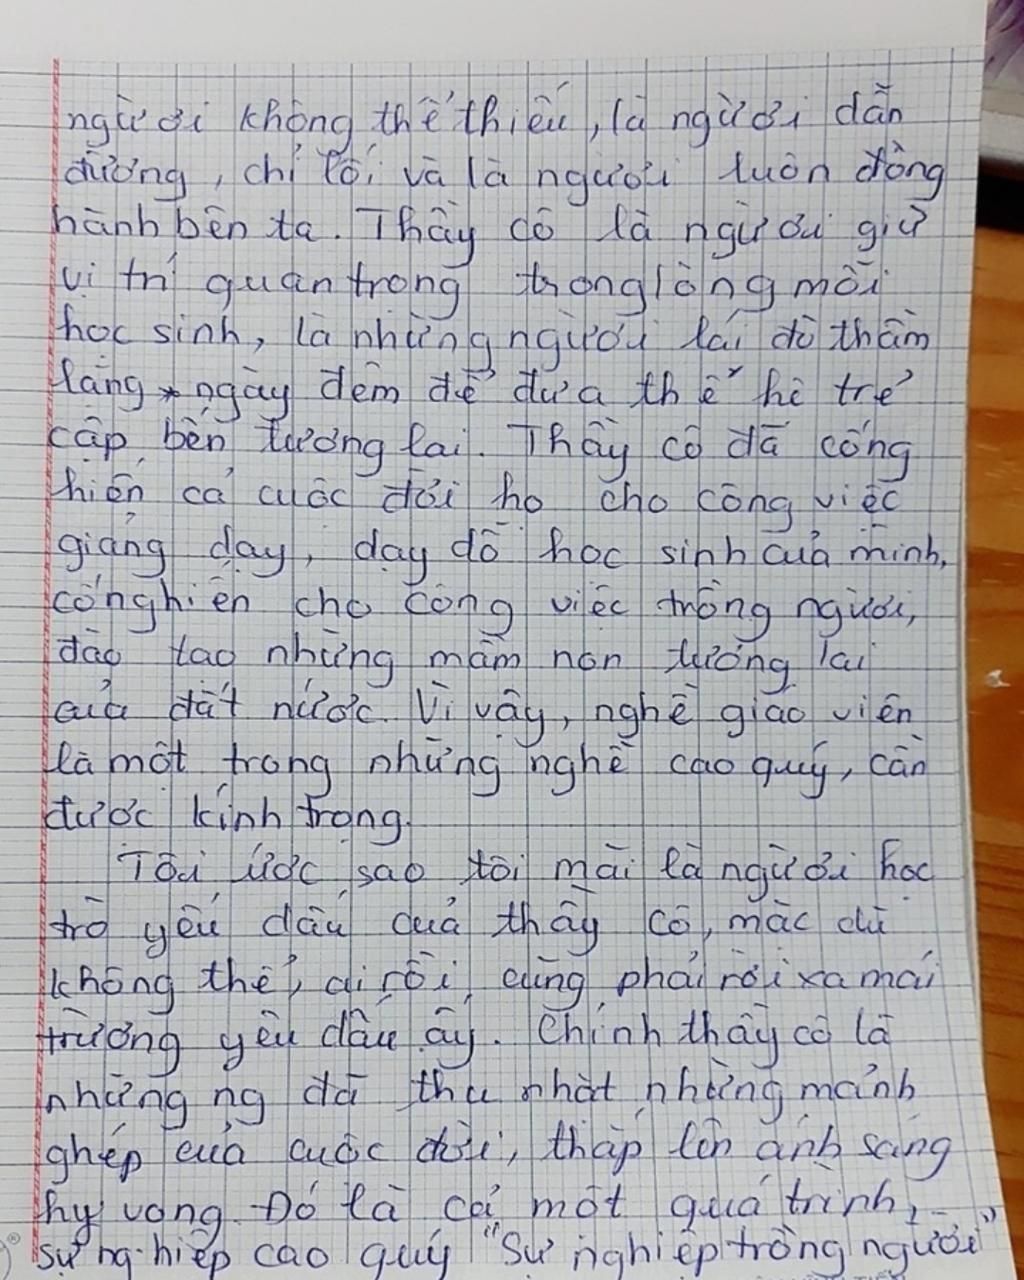 người không thể thiếu, là người dẫn
đường, chỉ lối và là người luôn đồng
hành bên ta. Thầy cô là người giữ
vị trí quan trọng trong lòng mỗi
học sinh, là những người lái đò thầm
lặng ngày đêm để đưa thế hệ trẻ
cập bến tương lai. Thầy cô đã cống
hiến cả cuộc đời họ cho công việc
giảng dạy, dạy dỗ học sinh của mình,
cống hiến cho công việc trồng người,
đào tạo những mầm non tương lai
của đất nước. Vì vậy, nghề giáo viên
là một trong những nghề cao quý, cần
được kính trọng.
Tôi ước sao tôi mãi là người học
trò yêu dấu của thầy cô, mặc dù
không thể, ai rồi cũng phải rời xa mái
trường yêu dấu ấy. Chính thầy cô là
những ng đã thu nhặt những mảnh
ghép của cuộc đời, thắp lên ánh sáng
hy vọng. Đó là cả một quá trình,
sự nghiệp cao quý "Sự nghiệp trồng người"